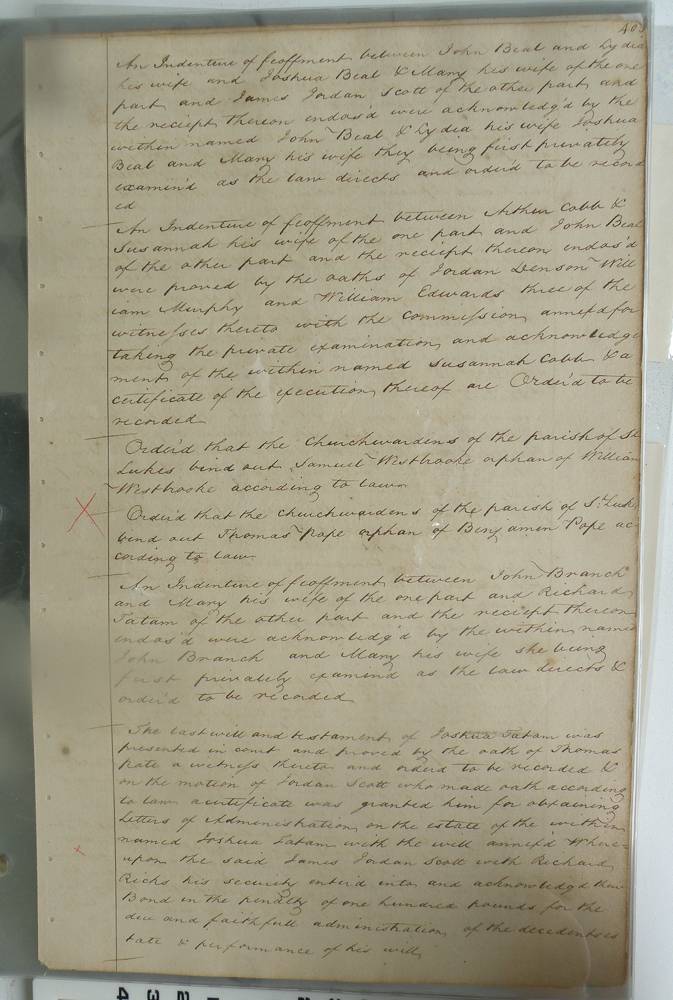 403
An Indenture of feoffment between John Beal and Lydia
his wife and Joshua Beal & Mary his wife of the one
part and James Jordan Scott of the other part and
the reciept thereon endos'd were acknowledg'd by the
within named John Beal & Lydia his wife Joshua
Beal and Mary his wife they being first privately
examin'd as the law directs and order'd to be record
ed
An Indenture of feoffment between Arthur Cobb &
Susannah his wife of the one part and John Beal
of the other part and the reciept thereon endos'd
were proved by the oaths of Jordan Denson Will
iam Murphy and William Edwards three of the
witnesses thereto with the Commission annex'd for
taking the private examination and acknowledge
ment of the within named Susannah Cobb & a
certificate of the execution thereof are Order'd to be
recorded
Order'd that the Churchwardens of the parish of St
Lukes bind out Samuel Westbrooke orphan of William
Westbrooke according to law
Order'd that the churchwardens of the parish of St. Lukes
bind out Thomas Pope orphan of Benjamin Pope ac
cording to law
An Indenture of feoffment between John Branch
and Mary his wife of the one part and Richard
Tatam of the other part and the reciept thereon
endos'd were acknowledg'd by the within named
John Branch and Mary his wife she being
first privately examined as the law directs &
order'd to be recorded
The last will and testament of Joshua Tatam was
presented in court and proved by the oath of Thomas
Pate a witness thereto and orderd to be recorded &
on the motion of Jordan Scott who made oath according
to law a certificate was granted him for obtaining
Letters of Administration on the estate of the within
named Joshua Tatam with the will annex'd Where
upon the said James Jordan Scott with Richard
Ricks his security enter'd into and acknowledg'd their
Bond in the penalty of one hundred pounds for the
due and faithfull administration of the decedents es
tate & performance of his will
4 3